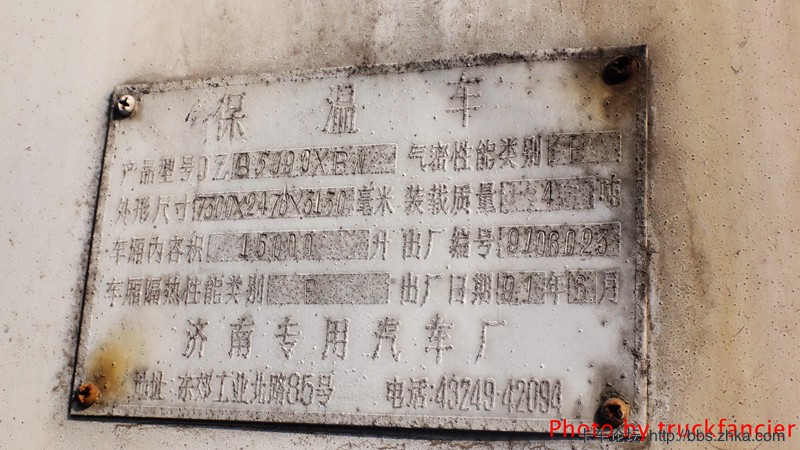 保温车
产品型号 气密性能类别
外形尺寸7500X2470X3130毫米 装载质量 4 吨
车厢内容积 15000 升 出厂编号
车厢隔热性能类别 出厂日期 91年 月
济南专用汽车厂
地址·东郊工业北路85号 电话·43249·42094
Photo by truckfancier
http://bbs.zhka.com/